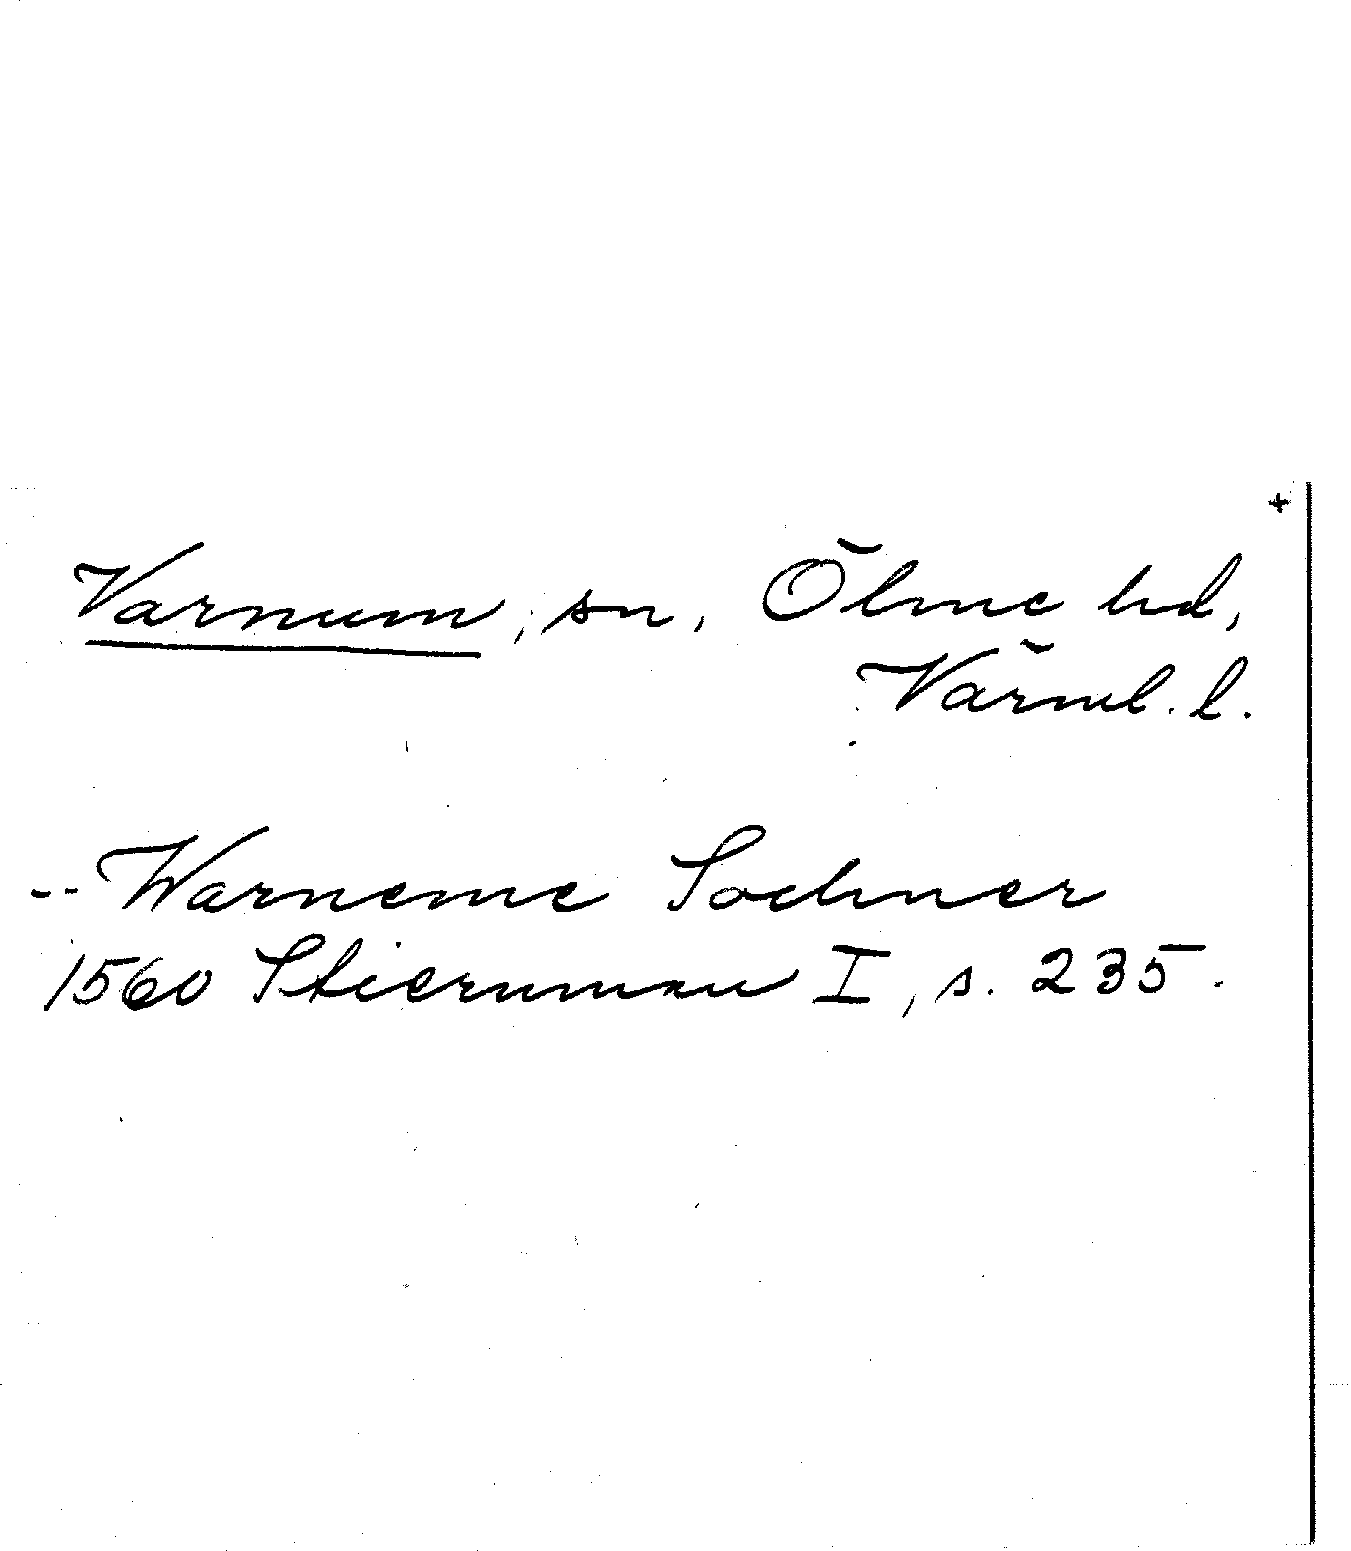 +
Varnum, sn, Ölme hd,
Värml. l.
-- Warneme Sochner
1560 Stiernman I, s. 235.